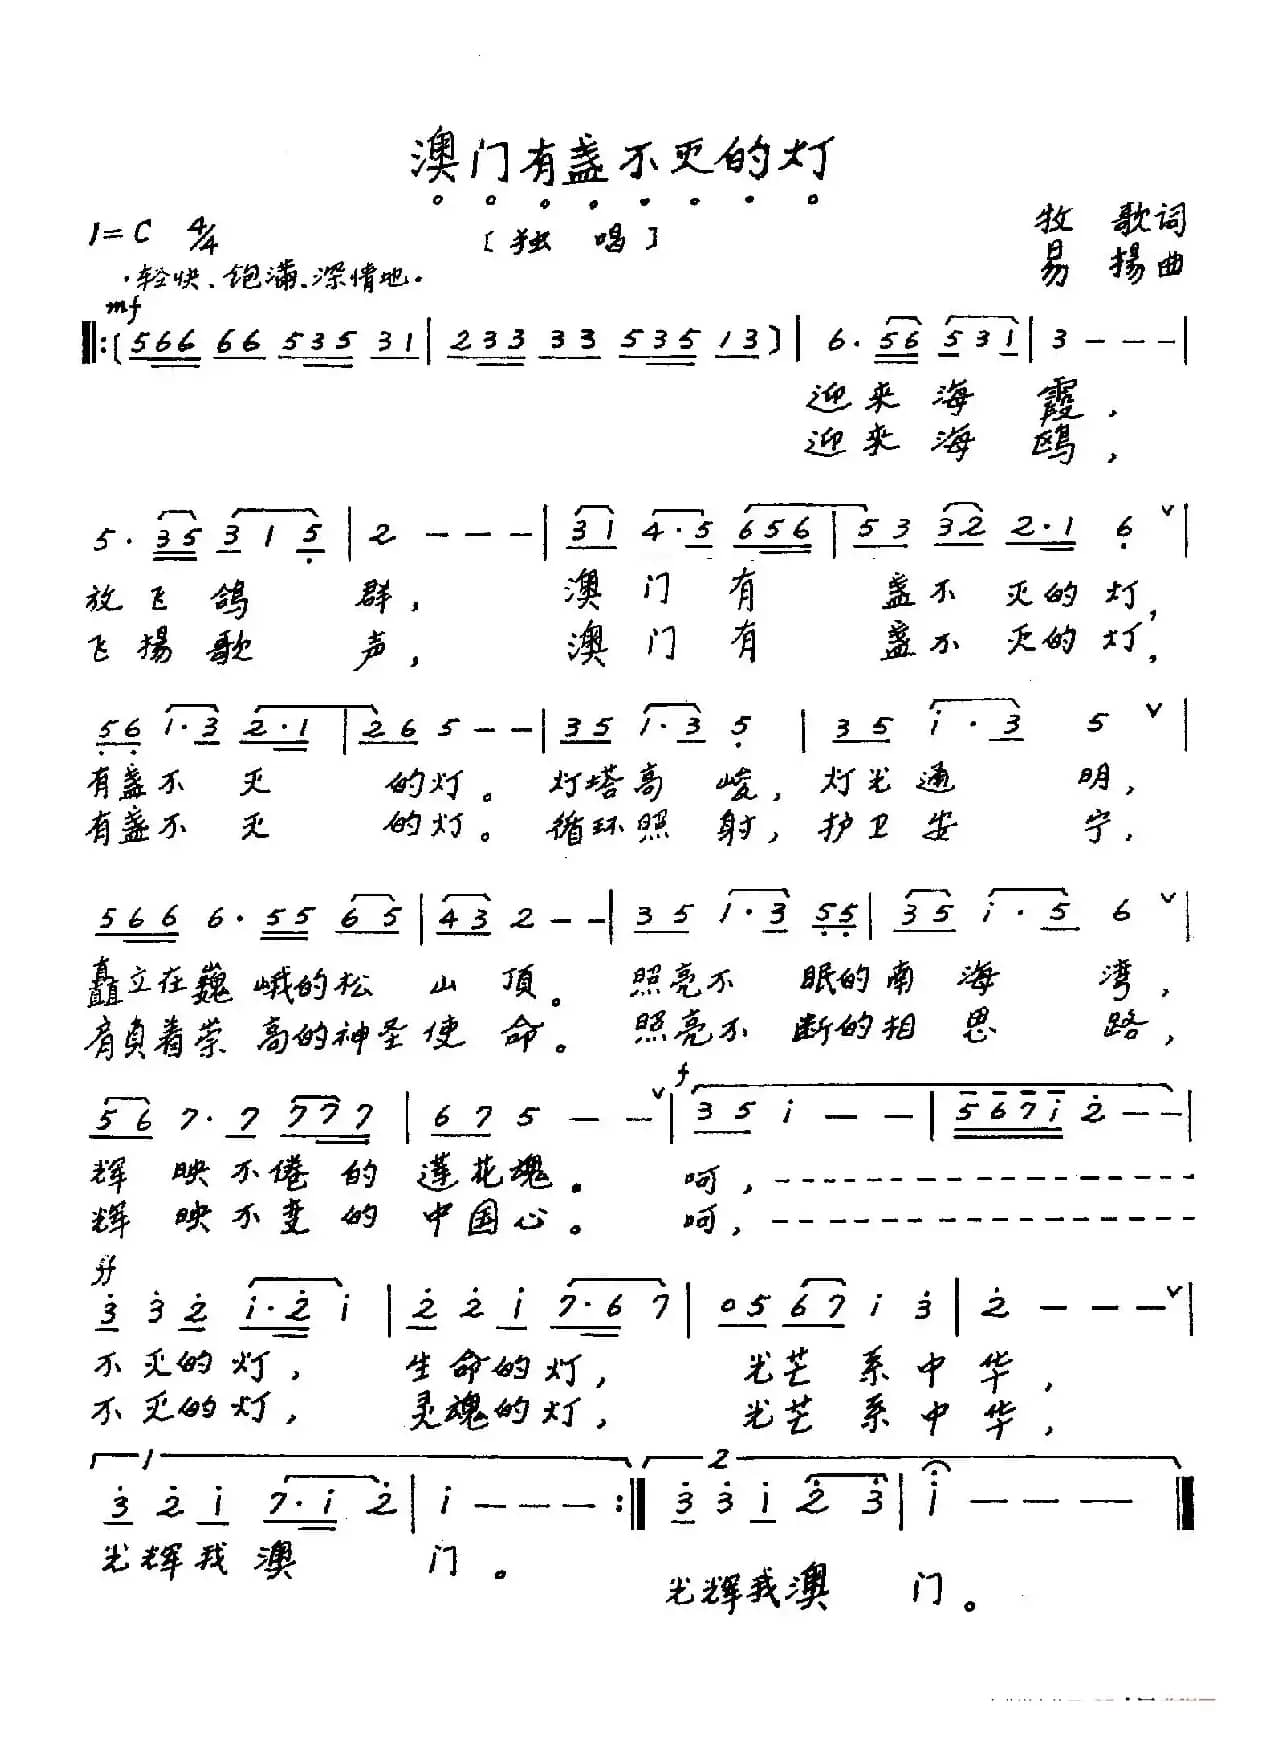 澳门有盏不灭的灯
1=C 4/4
〔独 唱〕
牧 歌词
易 揚曲
·轻快、饱满、深情地。
mf
𝄆(566 66 535 31 | 233 33 535 13) | 6· 56 531 | 3 - - - |
迎来海霞,
迎来海鸥,
5· 35 3 1 5 | 2 - - - | 31 4·5 656 | 53 32 2·1 6 ∨ |
放飞鸽 群, 澳门有 盏不灭的灯,
飞揚歌 声, 澳门有 盏不灭的灯,
56 1·3 2·1 | 26 5 - - | 35 1·3 5 | 35 i·3 5 ∨ |
有盏不灭 的灯。 灯塔高 峻, 灯光通 明,
有盏不灭 的灯。 循环照 射, 护卫安 宁,
566 6·55 65 | 43 2 - - | 35 1·3 55 | 35 i·5 6 ∨ |
矗立在巍峨的松 山顶。 照亮不眠的南海湾,
肩负着崇高的神圣使命。 照亮不断的相思路,
f
56 7·7 777 | 67 5 - - ∨ | 35 i - - | 567i 2 - - |
辉映不倦的莲花魂。 呵, - - - - - -
辉映不变的中国心。 呵, - - - - - -
ff
3 3 2 i·2 i | 2 2 i 7·6 7 | 05 67 i 3 | 2 - - - ∨ |
不灭的灯, 生命的灯, 光芒系中华,
不灭的灯, 灵魂的灯, 光芒系中华,
1 2
3 2 i 7·i 2 | i - - - :‖ 3 3 i 2 3 | i - - - ‖
光辉我澳 门。
光辉我澳 门。